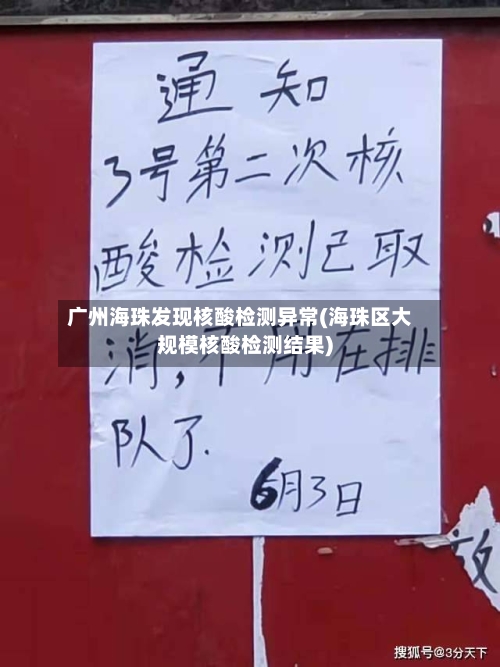 通知
3号第二次核
酸检测已取
广州海珠发现核酸检测异常(海珠区大
规模核酸检测结果)
消,不用在排
队了.
6月3日
搜狐号@3分天下